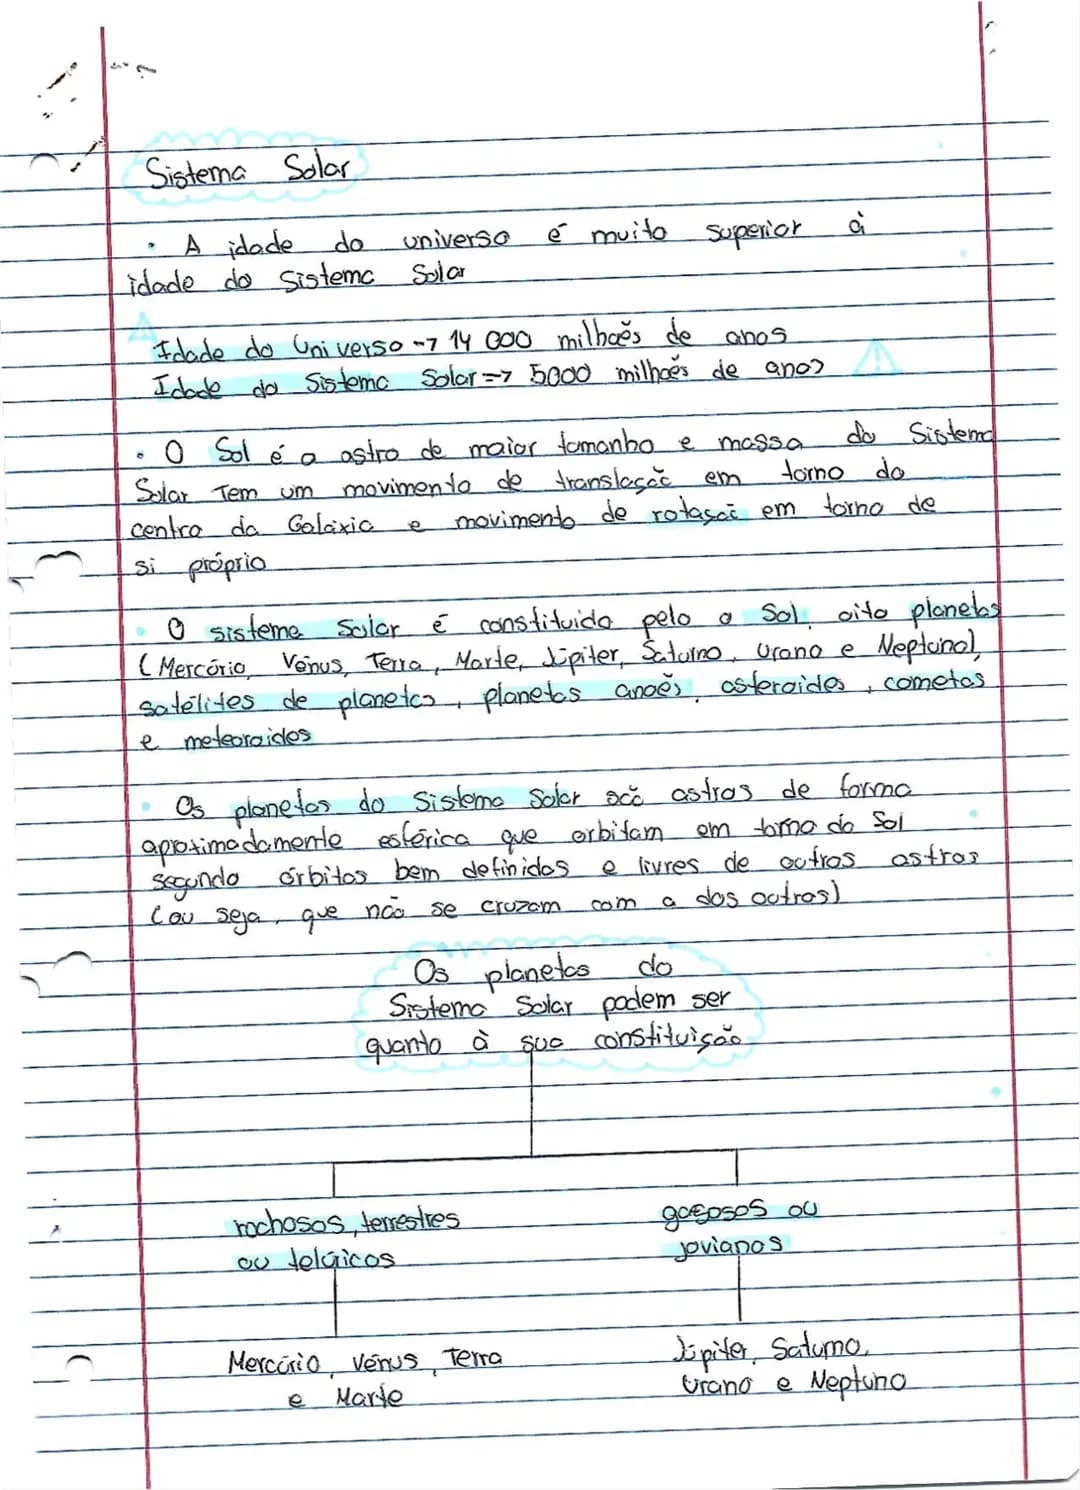 Sistema Solar
• A idade do universo é muito superior à
idade do Sistema Solar
Idade do Universo -> 14 000 milhões de anos
Idade do Sistema Solar => 5000 milhões de anos
• O Sol é o astro de maior tamanho e massa do Sistema
Solar Tem um movimento de translação em torno do
centro da Galáxia e movimento de rotação em torno de
si próprio
• O sistema Solar é constituído pelo o Sol, oito planetas
(Mercúrio, Vénus, Terra, Marte, Júpiter, Saturno, Urano e Neptuno),
satélites de planetas, planetas anões, asteroides, cometas
e meteoroides
• Os planetas do Sistema Solar são astros de forma
aproximadamente esférica que orbitam em torno do Sol
segundo órbitas bem definidas e livres de outros astros
(ou seja, que não se cruzam com a dos outros)
Os planetas do
Sistema Solar podem ser
quanto à sua constituição
rochosos, terrestres
ou telúricos
gasosos ou
jovianos
Mercúrio, Vénus, Terra
e Marte
Júpiter, Saturno,
Urano e Neptuno